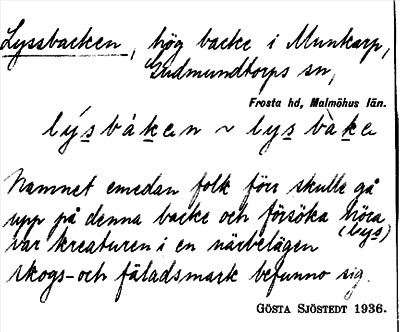 Lyssbacken, hög backe i Munkarp,
Gudmundtorps sn,
Frosta hd, Malmöhus län.
lýsbàkan ~ lysbàka
Namnet emedan folk förr skulle gå
upp på denna backe och försöka höra
(lys)
var kreaturen i en närbelägen
skogs- och fäladsmark befunno sig.
GÖSTA SJÖSTEDT 1936.